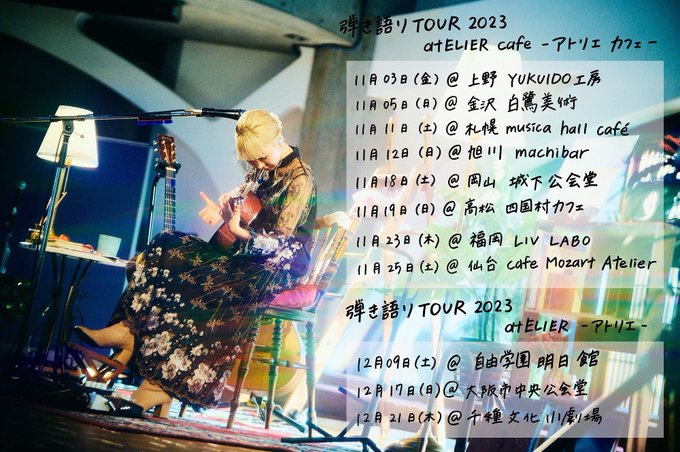 弾き語りTOUR 2023
atELIER cafe -アトリエ カフェ-
11月03日(金)@上野 YUKUIDO工房
11月05日(日)@金沢 白鷺美術
11月11日(土)@札幌 musica hall café
11月12日(日)@旭川 machibar
11月18日(土)@岡山 城下公会堂
11月19日(日)@高松 四国村カフェ
11月23日(木)@福岡 LIV LABO
11月25日(土)@仙台 cafe Mozart Atelier
弾き語りTOUR 2023
atELIER -アトリエ-
12月09日(土)@ 自由学園 明日館
12月17日(日)@大阪市中央公会堂
12月21日(木)@千種文化小劇場